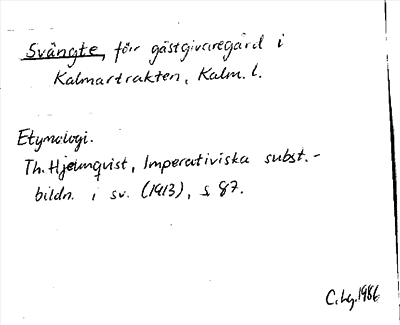 Svängte, förr gästgivaregård i
Kalmartrakten, Kalm. l.
Etymologi.
Th. Hjelmqvist, Imperativiska subst.-
bildn. i sv. (1913), s. 87.
C. Lg. 1986